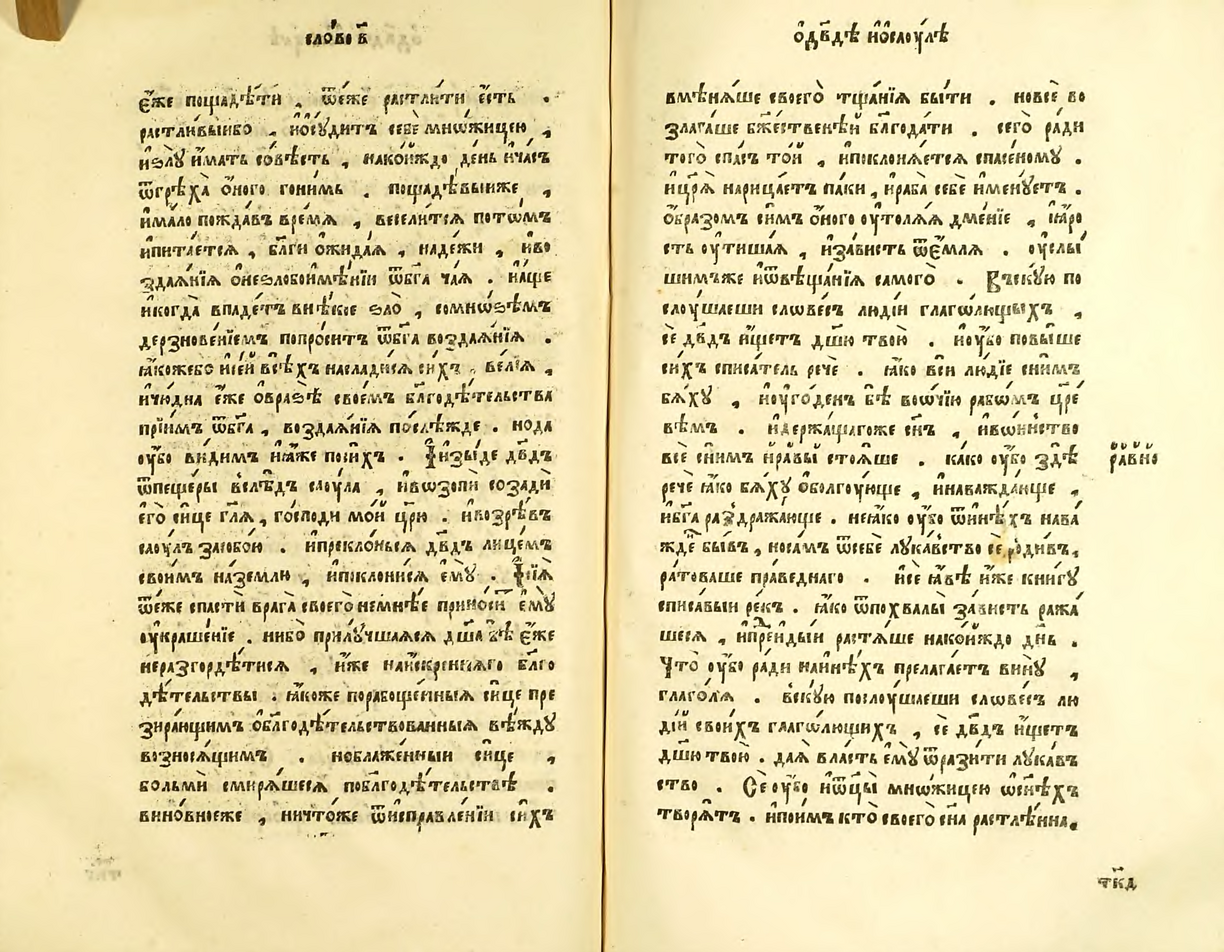 сло́во в҃
є҆́же пощадѣ́ти , ѿе́же растли́ти е҆́сть .
растли́выибо , и҆ѡ҆су́дитъ себѐ мно́жицею ,
и҆ѕлу̀ и҆́мать со́вѣсть , нако́йждо де́нь и҆ча́съ
ѿгрѣха̀ ѻ҆́ного гони́мь . пощадѣ́выиже ,
и҆ма́ло пожда́въ вре́мя , весели́тся пото́мъ
и҆пита́ется , бл҃ги ѻ҆жида́я , наде́жи , и҆во
здая́нїя ѻ҆неѕло́боимѣ́нїи ѿбг҃а ча́я . и҆а҆́ще
и҆когда̀ впаде́тъ вънѣ́кое ѕло̀ , сомно́ѕѣмъ
дерзнове́нїемъ попро́ситъ ѿбг҃а воздая́нїя .
ꙗ҆́кожебо и҆се́й всѣ́хъ наслади́ся си́хъ , ве́лїя ,
и҆чю́дна є҆́же ѻ҆бра́ѕѣ свое́мъ бл҃годѣ́тельства
прїи́мъ ѿбг҃а , воздая́нїя послѣ́жде . нода
оу҆́бо ви́димъ и҆ꙗ҆́же поси́хъ . І҆изы́де дв҃дъ
ѿпеще́ры въслѣ́дъ саоу́ла , и҆возопѝ созадѝ
его̀ си́це гл҃я , го́споди мо́й цр҃ю . и҆возрѣ́въ
саоу́лъ засобо́ю . и҆преклони́ся дв҃дъ лице́мъ
свои́мъ назе́млю , и҆поклони́ся е҆му̀ . І҆сїя̀
ѿе́же спастѝ врага̀ своего̀ неме́нѣе прино́ситъ е҆му̀
оу҆краше́нїе . ни́бо прилу́чшаяся дш҃а бѣ̀ є҆́же
неразгордѣ́тися , и҆́же наи҆́скренняго бл҃го
дѣ́тельствы . ꙗ҆́коже порабоще́нныя си́це пре
зира́ющимъ ѻ҆блгодѣ́тельствованныя вѣ́жду
возносѧ́щимъ . ноблаже́нныи си́це ,
бо́льми смиря́шеся побл҃годѣ́тельствѣ .
вино́вноеже , ничто́же ѿисправле́нїи си́хъ
ѻ҆дв҃дѣ и҆ѡ҆саоу́лѣ
вмѣня́ше своего̀ тща́нїя бы́ти . новсѐ во
злага́ше бж҃е́ственѣй бл҃года́ти . сего̀ ра́ди
того̀ спа́съ то́й , и҆покланя́ется спасе́ному .
и҆цр҃я̀ нарица́етъ па́ки , и҆раба̀ себѐ и҆мену́етъ .
ѻ҆́бразомъ си́мъ ѻ҆́ного оу҆толя́я дме́нїе , ꙗ҆́ро
сть оу҆тиша́я , и҆за́висть ѿе́мля . оу҆слы́
шимъже и҆ѿвѣща́нїя самого̀ . Въску́ю по
слоу́шаеши слове́съ люді́й глаго́лющыхъ ,
сѐ дв҃дъ и҆́щетъ дш҃ю твою̀ . и҆оу҆́бо повы́ше
си́хъ списа́тель речѐ . ꙗ҆́ко всѝ лю́дїе сни́мъ
бя́ху , и҆оу҆го́денъ бѣ̀ воѻ҆чїю рабо́мъ цр҃е
вѣмъ . и҆держа́щагоже сн҃ъ , и҆во́инство
всѐ сни́мъ и҆нра́вы стоя́ше . ка́ко оу҆́бо здѣ̀
речѐ ꙗ҆́ко бя́ху ѻ҆болгоу́юще , и҆наважда́юще ,
и҆бг҃а раздража́юще . неꙗ҆́ко оу҆́бо ѿинѣ́хъ нава
жде́ бы́въ , носа́мъ ѿсебѐ лука́вство сѐ роди́въ ,
ра́товаше пра́веднаго . и҆сѐ ꙗ҆́вѣ и҆́же кни́гу
списа́выи ре́къ . ꙗ҆́ко ѿпохвалы̀ за́висть ража́
шеся , и҆пре́идыи растя́ше нако́йждо дн҃ь .
Что̀ оу҆́бо ра́ди наи҆нѣ́хъ прелага́етъ вину̀ ,
глаго́ля . въску́ю послоу́шаеши слове́съ лю
ді́й свои́хъ глаго́лющихъ , сѐ дв҃дъ и҆́щетъ
дш҃ю твою̀ . дая̀ вла́сть е҆му̀ ѿрази́ти лука́в
ство . Сѐ оу҆́бо и҆ѻ҆тцы̀ мно́жицею ѡ҆сынѣ́хъ
творя́тъ . и҆пои́мъ кто̀ своего̀ сн҃а растлѣ́нна,
ра́вно
тк҃д